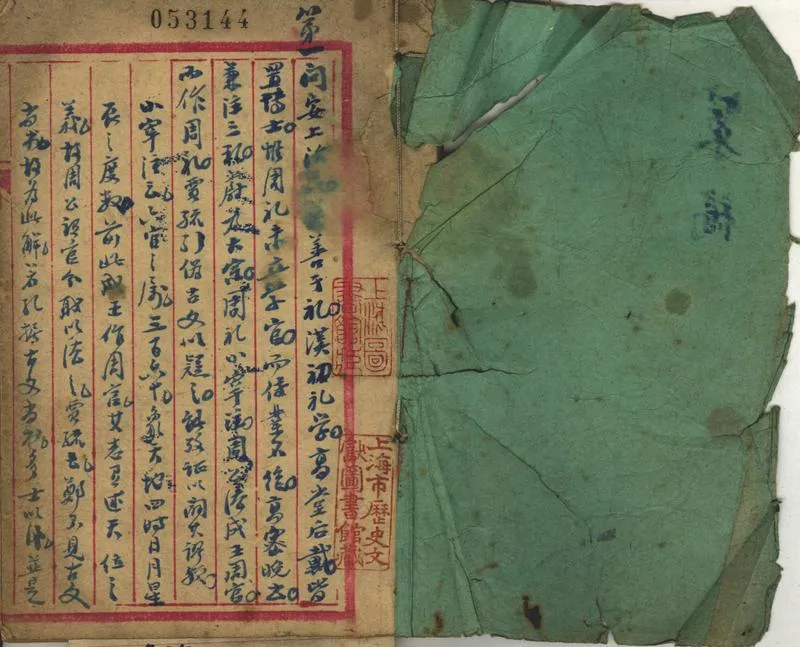 053144
第一问 安上治 善于礼 汉初礼学 高堂后戴皆
置博士 惟周礼未立学官 而传業不絶 高密晚出
兼注三礼 蔚为大宗 周礼小宰注 成王周官
而作周礼 贾疏引伪古文以疑之 证以
小宰注云 六官之属三百六十 象天地四时日月星
辰之度数 前此成王作周官 其志有述天位之
義 故周公设官分职以法之 贾疏云 郑不见古文
尚书 故为此解 若孔据古文尚书多士以 並是
上海圖書館藏
上海市歷史文獻圖書館藏